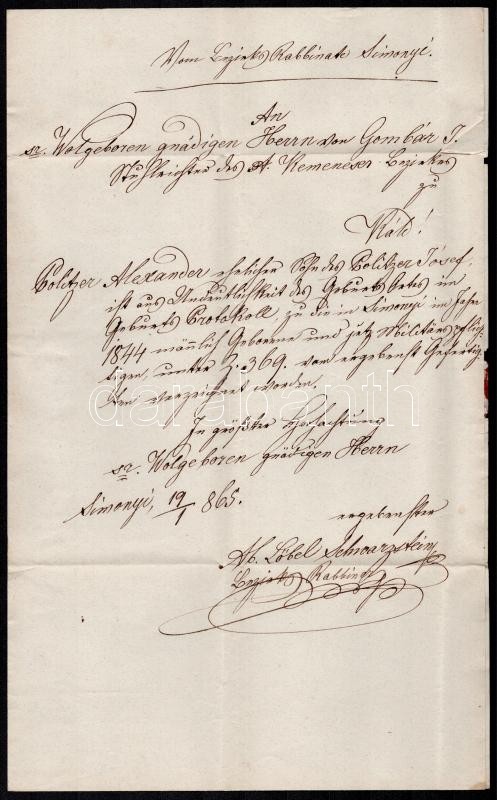 Vom Bezirks Rabbinate Simonyi.
An
Sr. Wolgeboren gnädigen Herrn von Gombár J.
Stuhlrichter des A. Kemeneser Bezirkes
zu
Káld!
Politzer Alexander ehelicher Sohn des Politzer Jósef,
ist aus Undeutlichkeit des Geburts Ortes im
Geburts Protokoll, zu die in Simonyi im Jahre
1844 männlich Geborene und jetz Militärspflich-
tigen, unter Z. 369. vom ergebenst Gefertig-
ten verzeichnet worden.
In größter Hochachtung
Sr. Wolgeboren gnädigen Herrn
Simonyi, 19/1 865.
ergebenster
Ab. Löbel Schwarzstein
Bezirks Rabbiner
darabanth